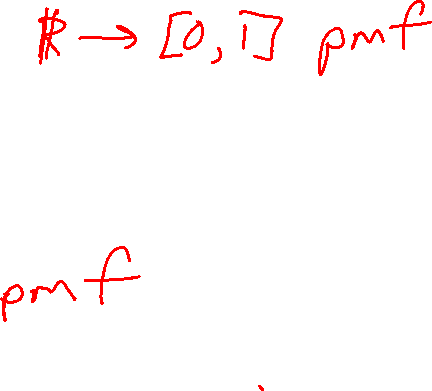 ℝ → [0, 1] pmf
pmf